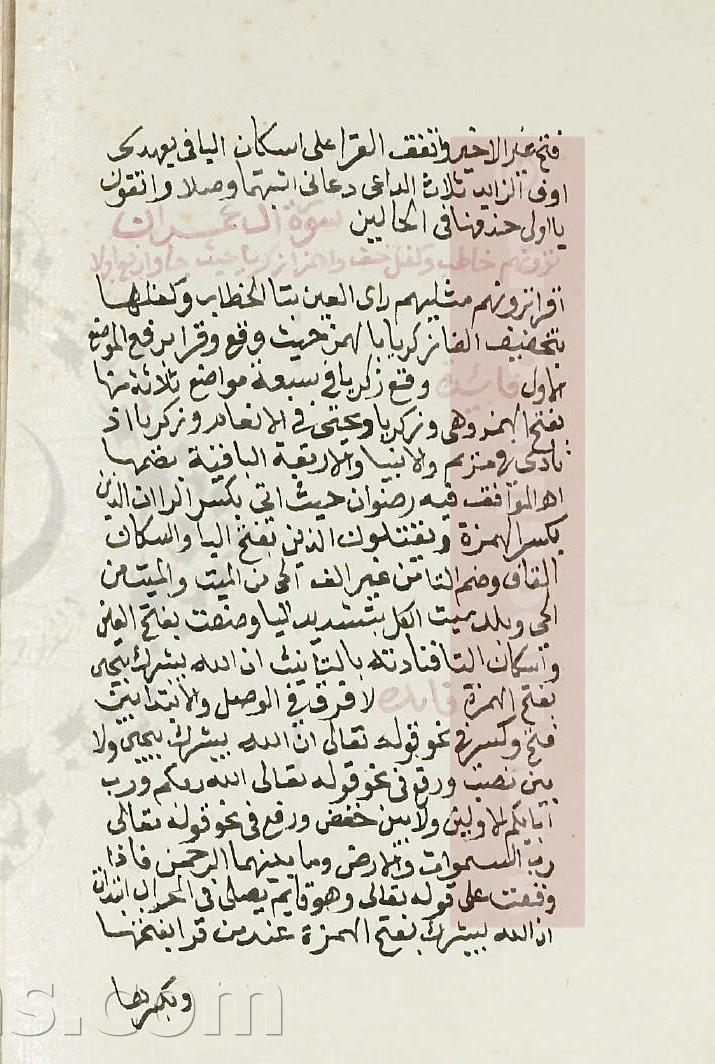 فتح غير الاخير واتفق القرا على اسكان اليا فى يعهدى
اوف الزايد ثلاث الداعى دعانى اثبتهما وصلا واتقون
يا اولى حذفها فى الحالين سورة آل عمران
ترونهم خاطب وكفل خف والهمز ارفع زكريا حيث جا وارفع اولا
اقرا ترونهم مثليهم راى العين بتا الخطاب وكفلها
بتخفيف الفا زكريا بالهمز حيث وقع وقرا برفع الموضع
الاول فايدة وقع زكريا فى سبعة مواضع ثلاثة منها
بفتح الهمز وهى وزكريا ويحيى فى الانعام وزكريا اذ
نادى فى مريم والانبيا والاربعة الباقية بضمها
اهـ الموافق فيه رضوان حيث اتى بكسر الرا ان الدين
بكسر الهمزة ويقتلون الذين بفتح اليا واسكان
القاف وضم التا من غير الف الحى من الميت والميت من
الحى وبلد ميت الكل بتشديد اليا وضعت بفتح العين
واسكان التا فنادته بالتانيث ان الله يبشرك بيحيى
بفتح الهمزة فايده لا فرق فى الوصل والابتدا بين
فتح وكسر فى نحو قوله تعالى ان الله يبشرك بيحيى ولا
بين نصب ورفع فى نحو قوله تعالى الله ربكم ورب
آبائكم الاولين ولا بين خفض ورفع فى نحو قوله تعالى
رب السموات والارض وما بينهما الرحمن فاذا
وقفت على قوله تعالى وهو قايم يصلى فى المحراب ابتدات
ان الله يبشرك بفتح الهمزة عند من قرا بفتحها
وبكسرها
ns.com